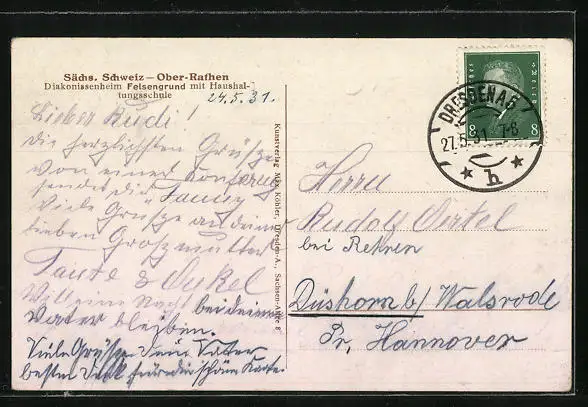 Sächs. Schweiz — Ober-Rathen
Diakonissenheim Felsengrund mit Haushal-
tungsschule
24.5.31.
Lieber Rudi!
die herzlichsten Grüße
von einer
sendet dir Fanny
Viele Grüße an deine
lieben Großmutter
Tante & Onkel
Will eine Nacht bei deinem
Vater bleiben.
Viele Grüße dein Vater
besten Dank für die schöne Karte.
Kunstverlag Max Köhler, Dresden-A., Sachsen-Allee 8
DRESDEN A 5
27.5.31. 7-8
h
8 8
Herrn
Rudolf Oertel
bei Rehren
Düshorn b/ Walsrode
Pr. Hannover